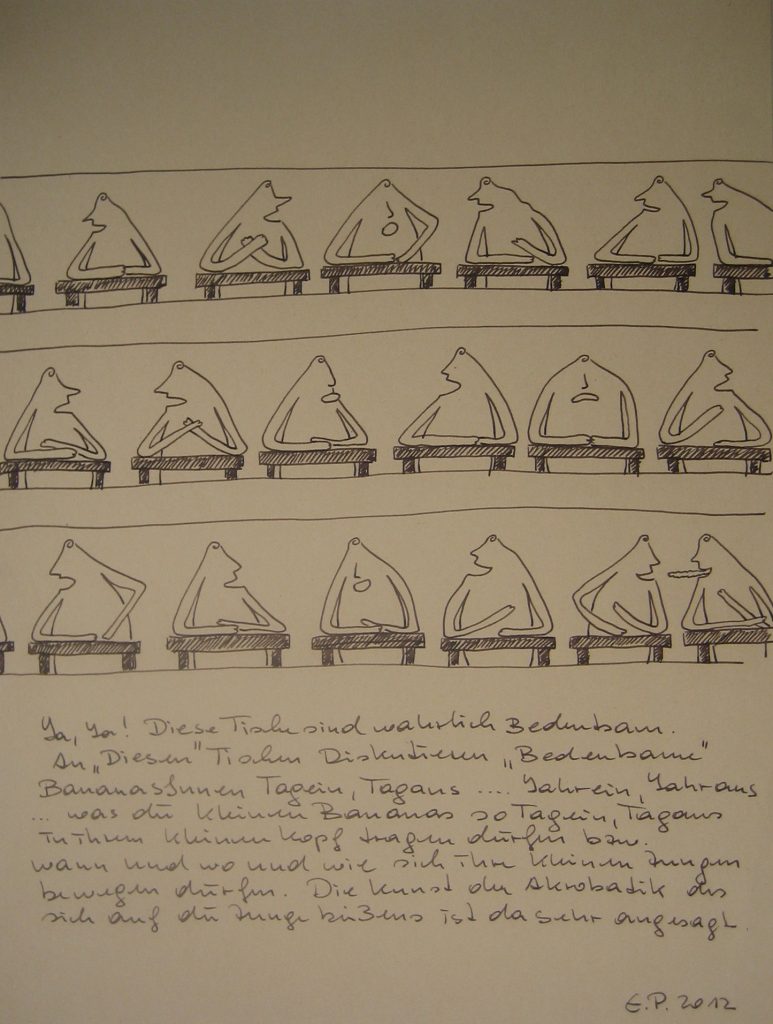 Ya, Ya! Diese Tische sind wahrlich Bedenksam.
An „Diesen" Tischen Diskutieren „Bedenksame"
BananasInnen Tagein, Tagaus .... Jahrein, Jahraus
... was die kleinen Bananas so Tagein, Tagaus
in ihrem kleinen Kopf tragen dürfen bzw.
wann und wo und wie sich ihre kleinen Zungen
bewegen dürfen. Die Kunst der Akrobatik des
sich auf die Zunge beißens ist da sehr angesagt.
E.P. 2012